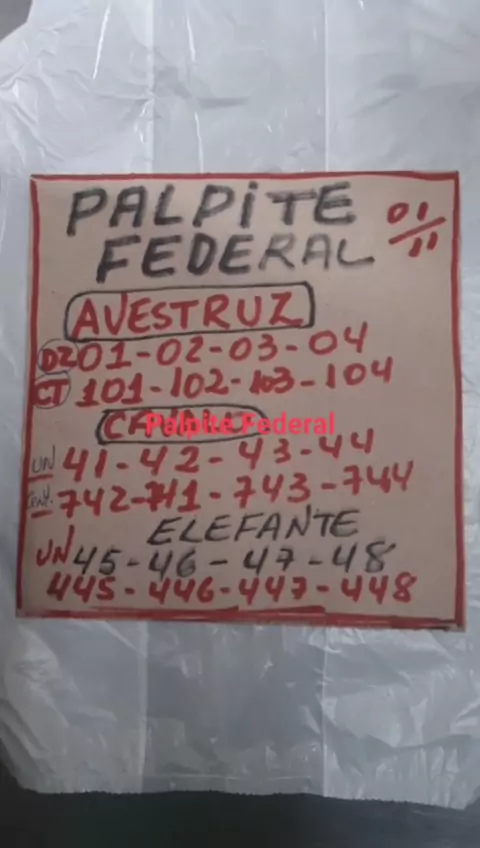 PALPITE
01/11
FEDERAL
AVESTRUZ
DZ 01-02-03-04
CT 101-102-103-104
Palpite Federal
UN 41-42-43-44
Cent. 742-741-743-744
ELEFANTE
UN 45-46-47-48
445-446-447-448